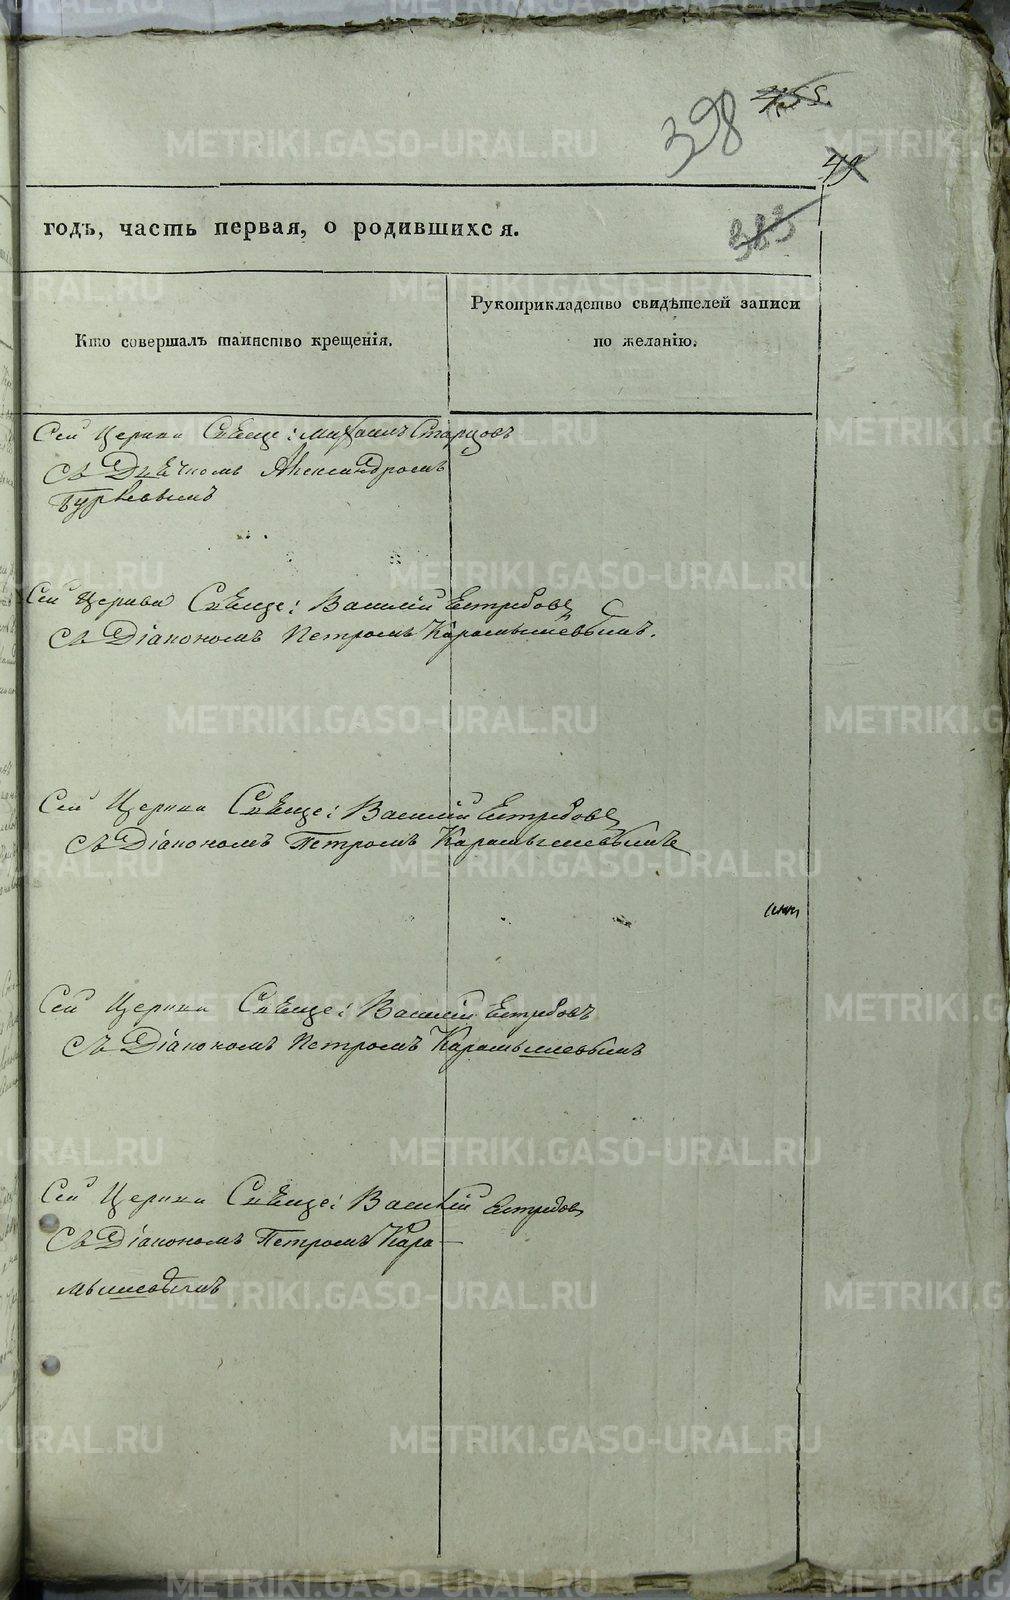 398 455.
49
383
годъ, часть первая, о родившихся.
Кто совершалъ таинство крещенія.
Рукоприкладство свидѣтелей записи
по желанію.
Сей Церкви Свѣще: Михаилъ Старцовъ
съ Дьячкомъ Александромъ
Сей Церкви Свѣще: Василій Ястребовъ
съ Діакономъ Петромъ Карамышевымъ.
Сей Церкви Свѣще: Василій Ястребовъ
съ Діакономъ Петромъ Карамышевымъ
Сей Церкви Свѣще: Василій Ястребовъ
съ Діакономъ Петромъ Карамышевымъ
Сей Церкви Свѣще: Василій Ястребовъ
съ Діакономъ Петромъ Кара-
мышевымъ
METRIKI.GASO-URAL.RU